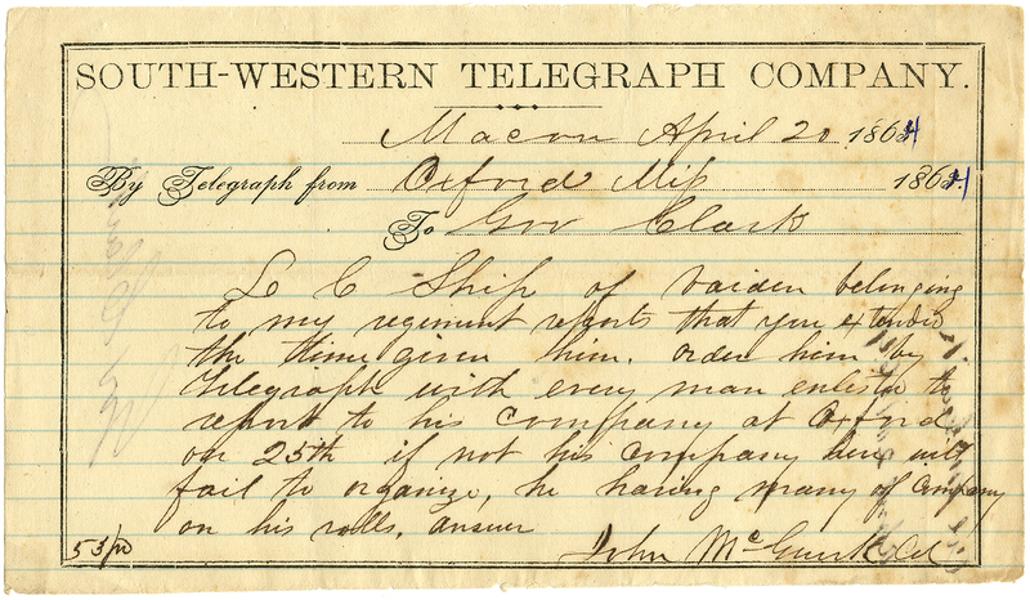 SOUTH-WESTERN TELEGRAPH COMPANY.
Macon April 20 1864
By Telegraph from Oxford Miss 1864
To Gov Clark
L C Ship of Vaiden belonging
to my regiment reports that you extended
the time given him. order him by
telegraph with every man enlisted to
report to his company at Oxford
on 25th if not his company here will
fail to organize, he having many of company
on his rolls. answer
53/pd John McGuirk Col